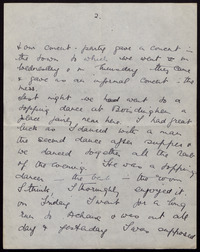 2.
& our concert-party gave a concert in
the town to which we went on
Wednesday & on Thursday they came
& gave us an informal concert in the
mess.
Last night we had went to a
topping dance at Boisdinghem a
place fairly near here. I had great
luck as I danced with a man
the second dance after supper &
we danced together all the rest
of the evening. He was a topping
dancer the best in the room
I think. I thoroughly enjoyed it.
On Friday I went for a long
run to Achaire & was out all
day & yesterday I was supposed